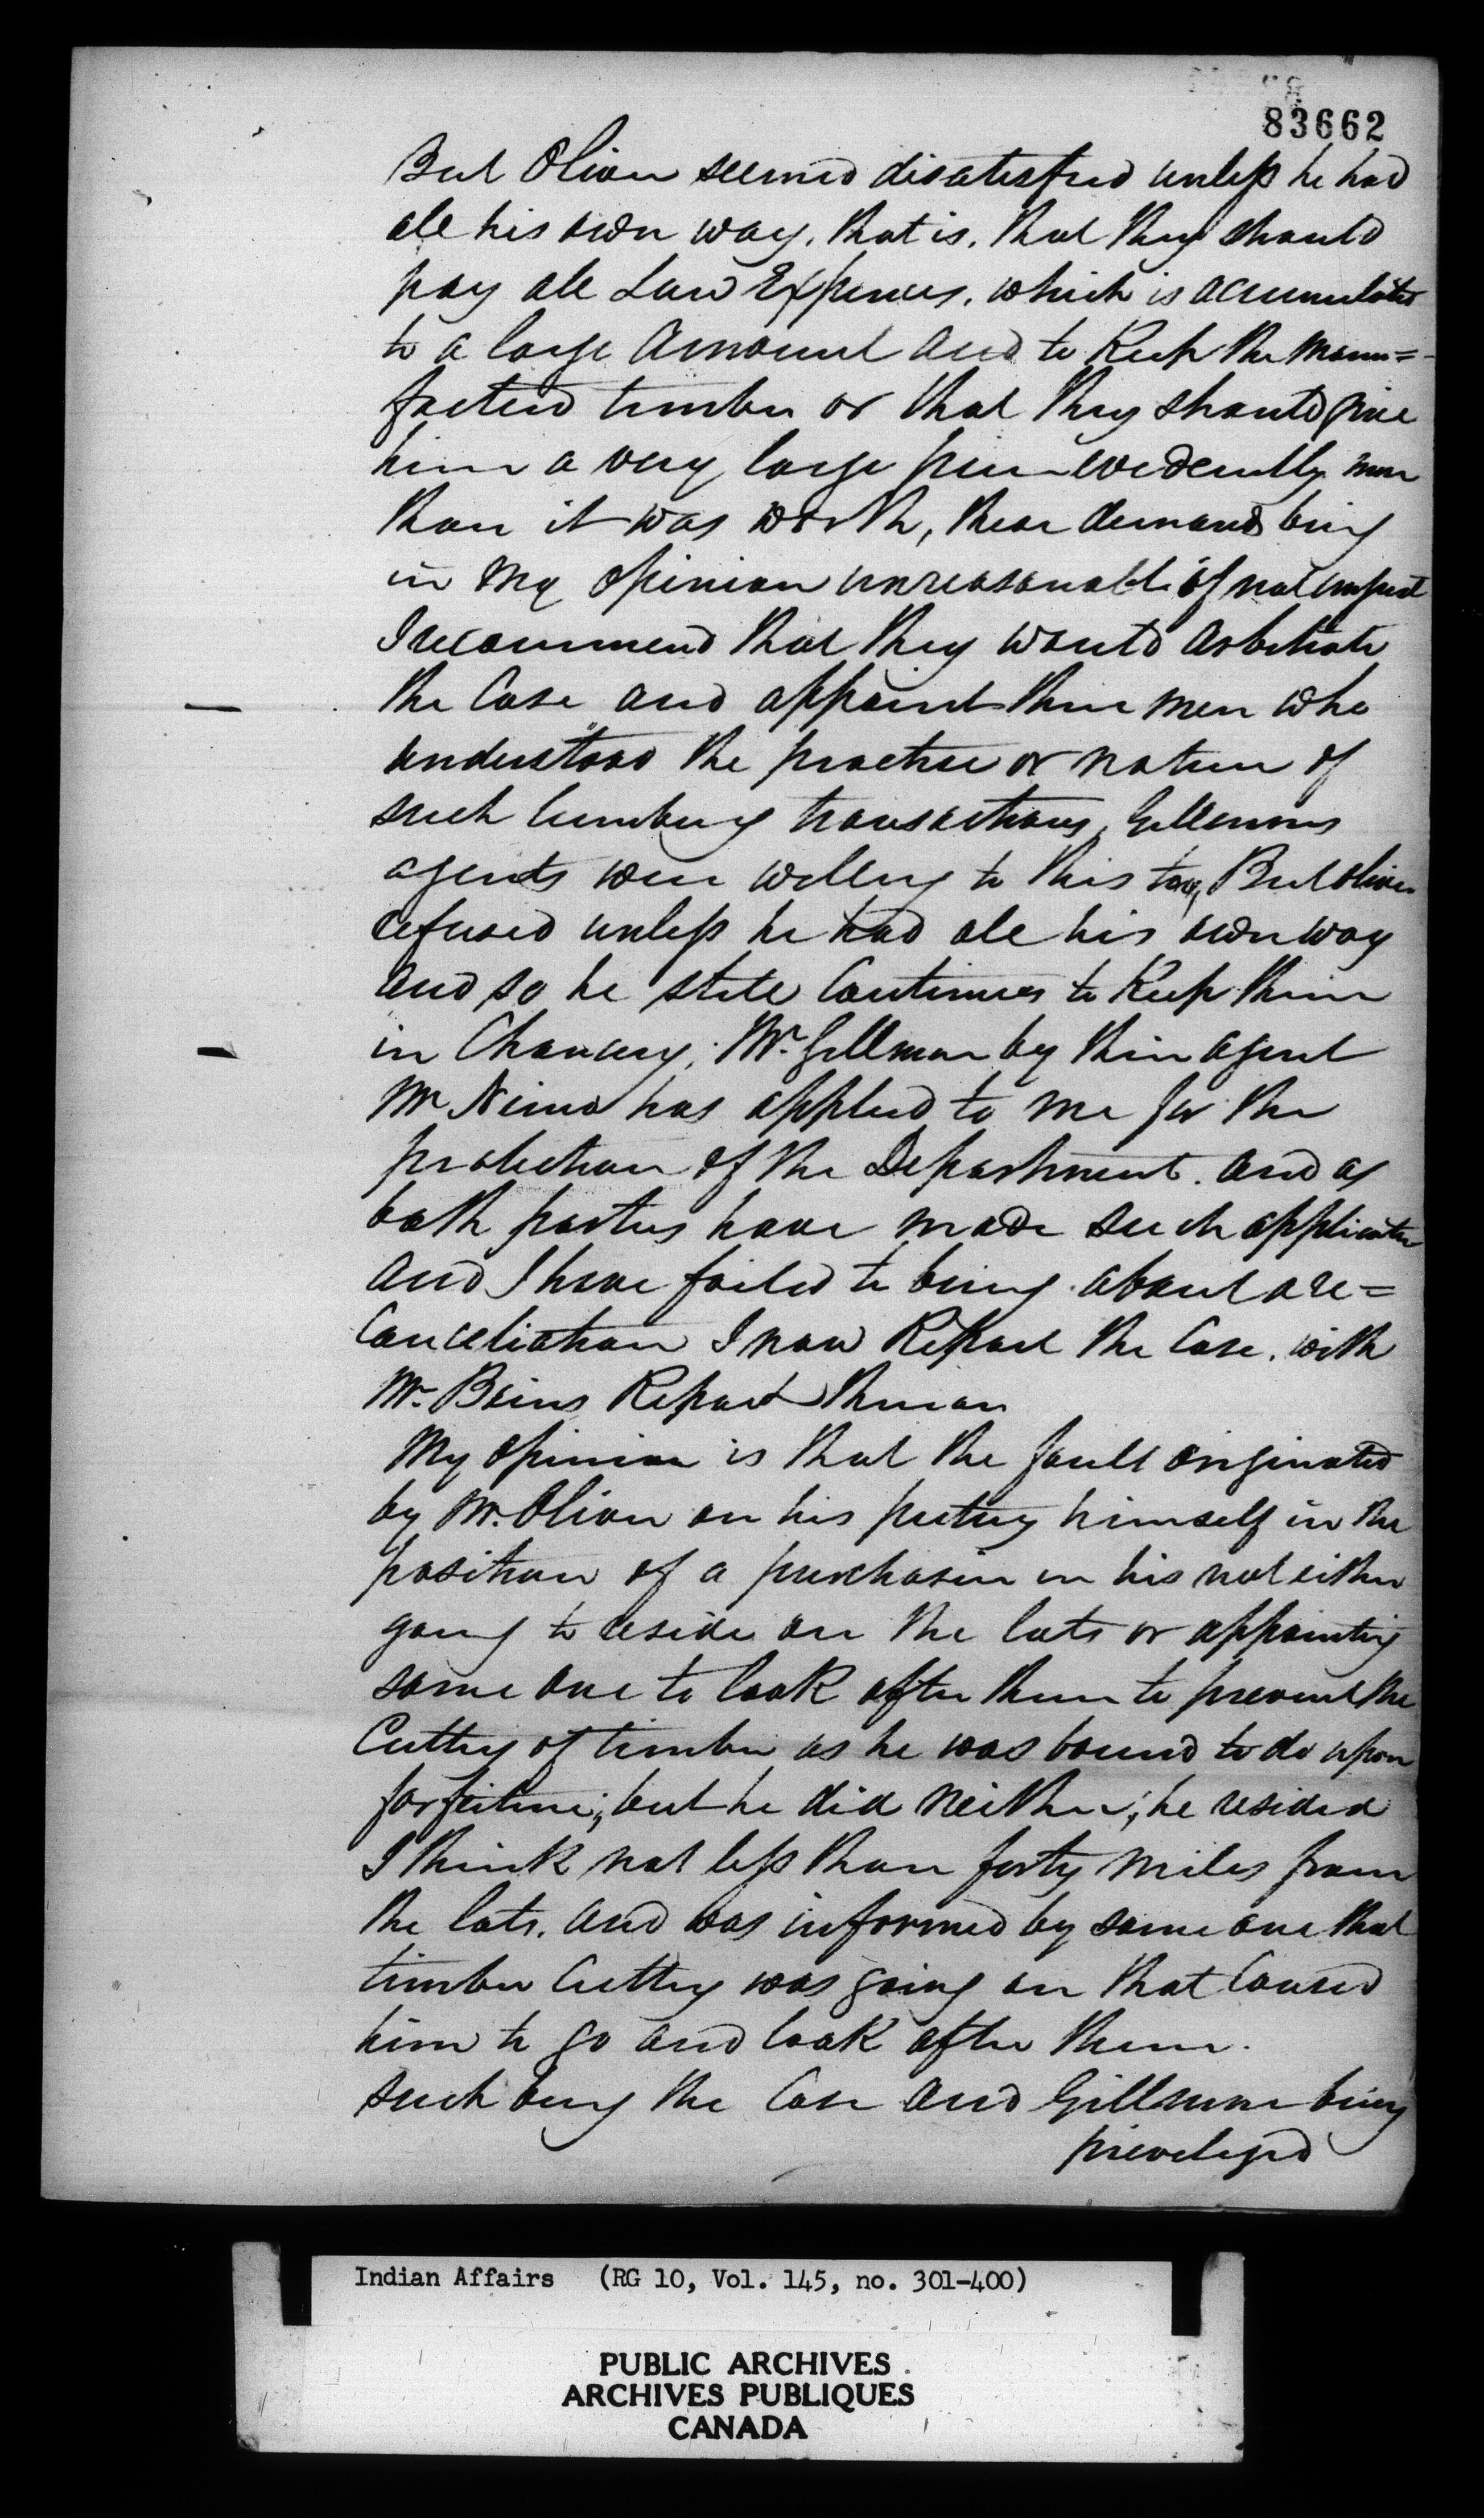 83662
But Oliver seemed disatisfied unless he had
all his own way, that is, that they should
pay all Law Expences, which is accumulated
to a large Amount and to Keep the manu=
factured timber or that they should give
him a very large price evedently more
than it was worth, these demands being
in my opinion unreasonable if not unjust
I recommend that they would arbitrate
the Case and appoint three men who
understood the practice or nature of
such lumbering transactions, Gillmors
agents were willing to this too, But Oliver
refused unless he had all his own way
and so he still Continues to Keep them
in Chancery. Mr. Gillmor by their agent
Mr Nimo has applied to me for the
protection of the Department. and as
both parties have made such application
and I have failed to bring about a re=
conceliation I now Report the Case, with
Mr. Report thereon
My opinion is that the fault originated
by Mr. Oliver on his puting himself in the
position of a purchaser in his not either
going to reside on the lots or appointing
some one to look after them to prevent the
Cutting of timber as he was bound to do upon
forfeiture; but he did neither; he resided
I think not less than forty miles from
the lots. and was informed by some one that
timber Cutting was going on that Caused
him to go and look after them.
such being the Case and Gillmor being
priveleged
Indian Affairs (RG 10, Vol. 145, no. 301-400)
PUBLIC ARCHIVES
ARCHIVES PUBLIQUES
CANADA